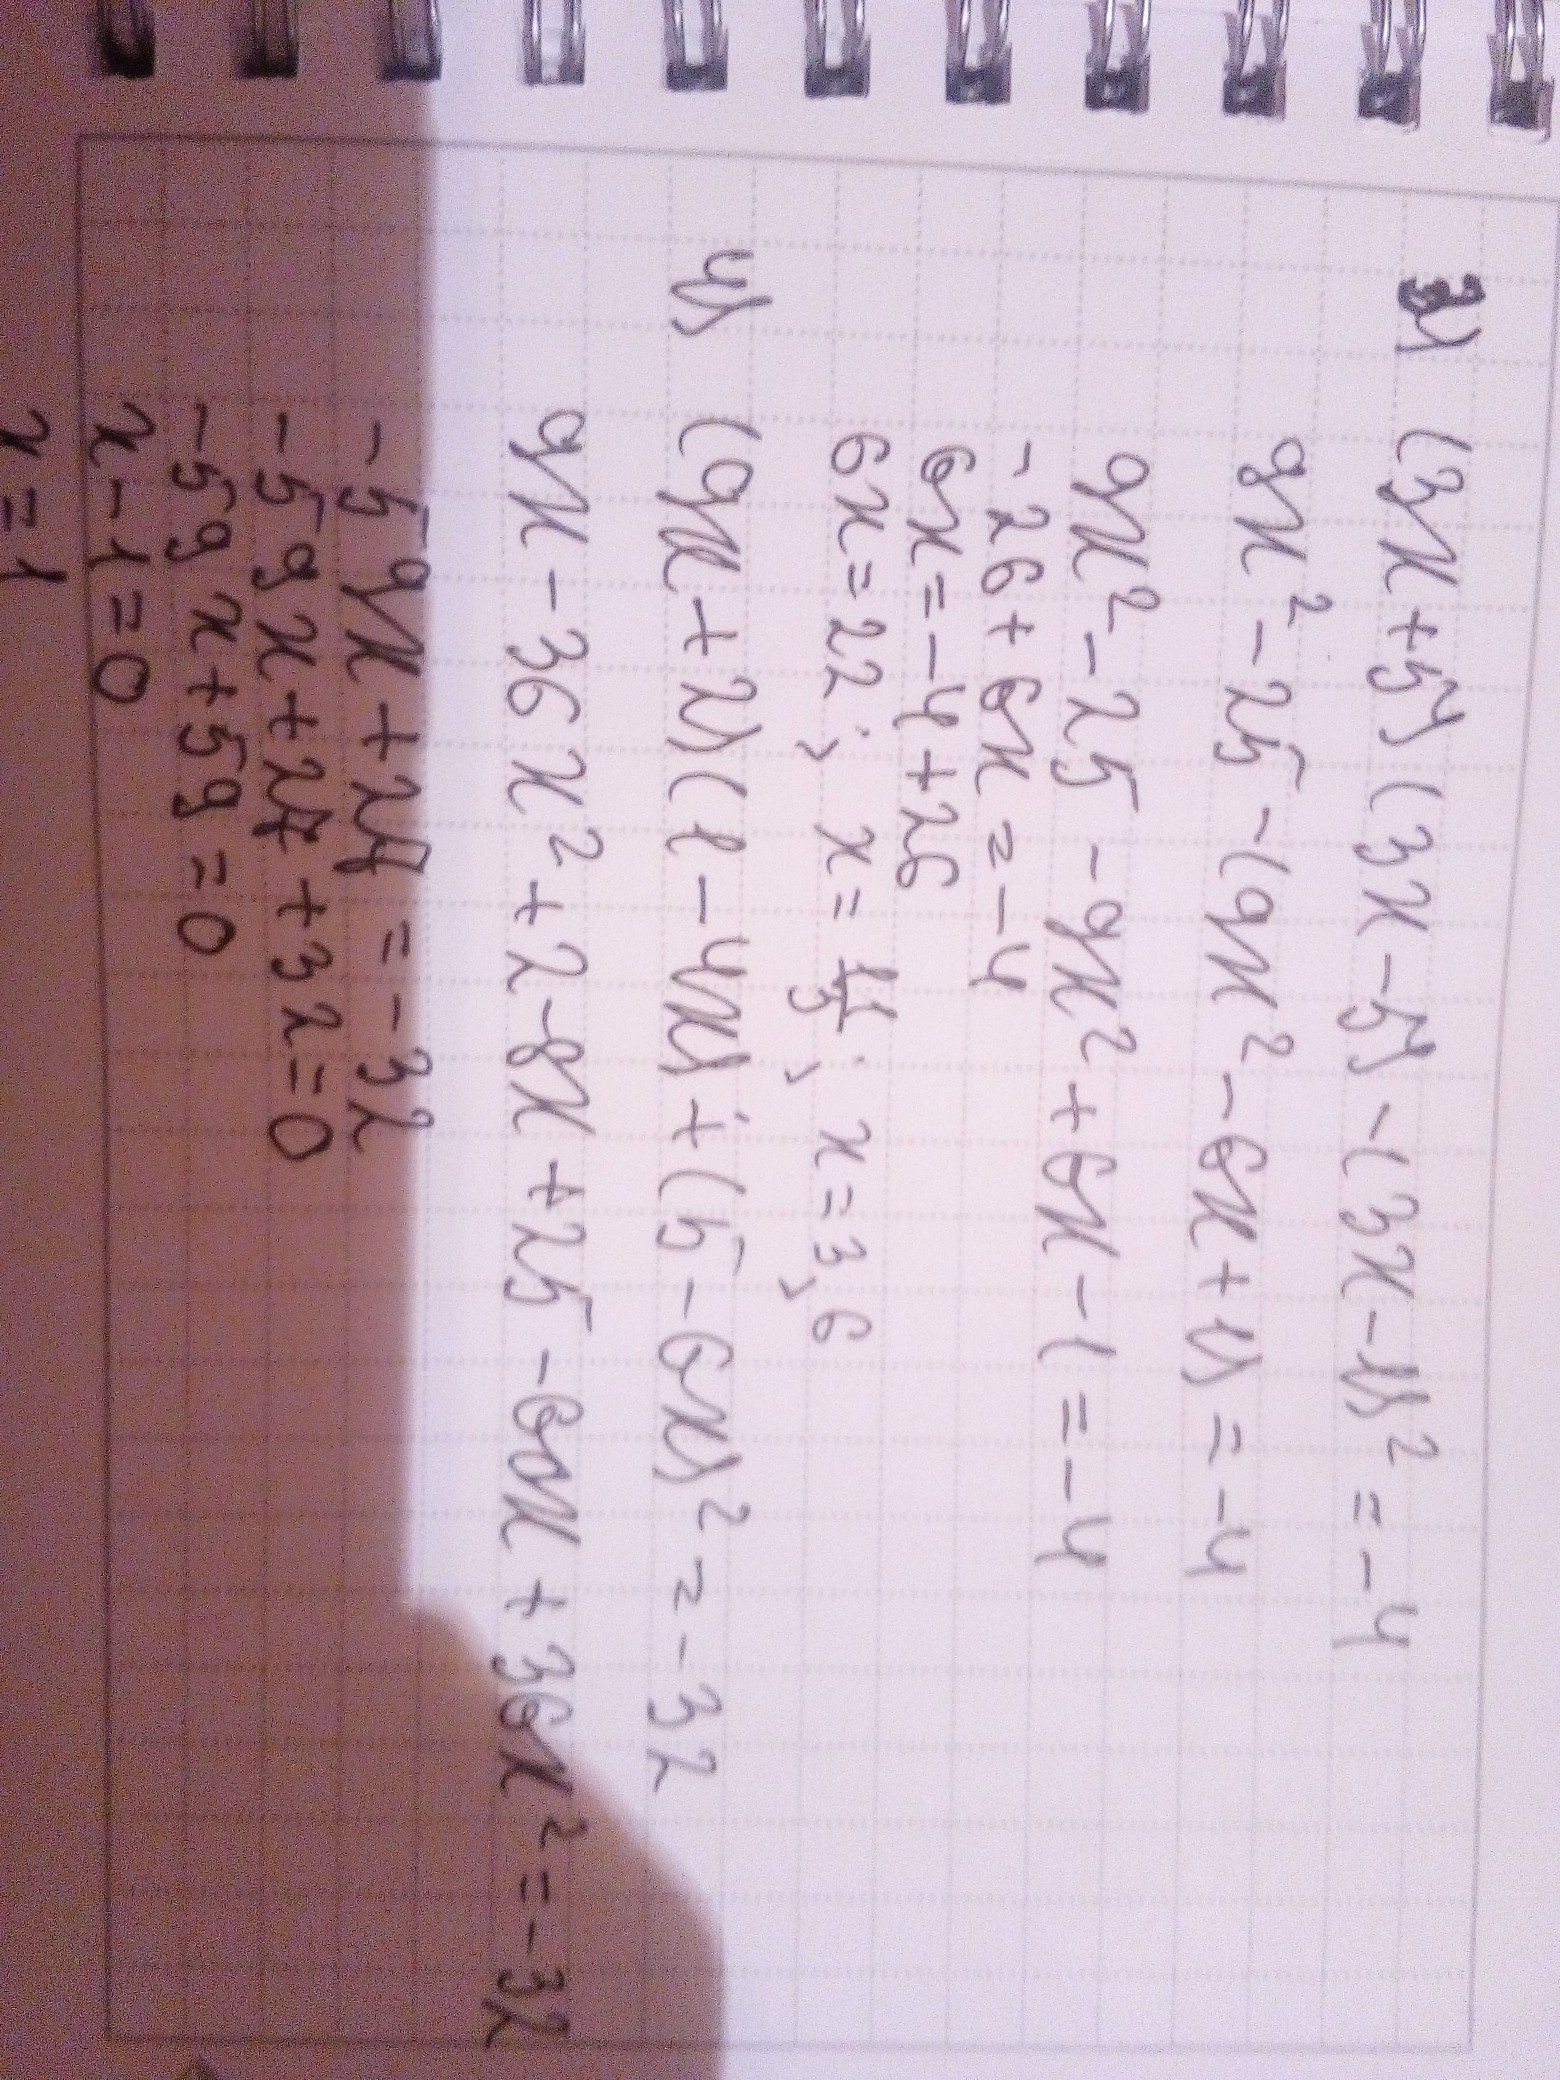 3) (3x+5)(3x-5)-(3x-1)² = -4
9x²-25-(9x²-6x+1) = -4
9x²-25-9x²+6x-1 = -4
-26+6x = -4
6x = -4+26
6x = 22; x = 11/3; x = 3,6
4) (9x+2)(1-4x)+(5-6x)² = -32
9x-36x²+2-8x+25-60x+36x² = -32
-59x+27 = -32
-59x+27+32=0
-59x+59=0
x-1=0
x=1